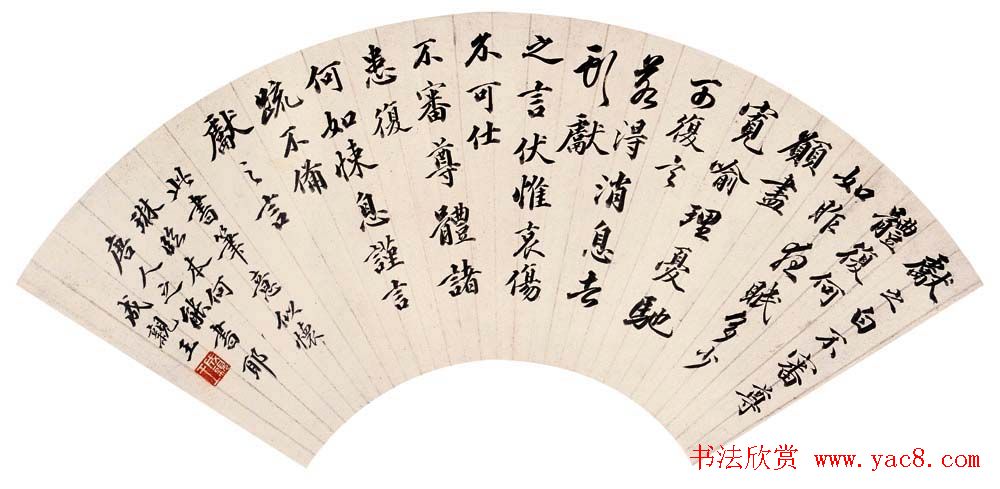 獻之白不審尊
體復何
如昨夜眠多少
盡
寬喻理憂馳
可復言
若得消息去
獻
之言伏惟哀傷
不可仕
不審尊體諸
患復
何如悚息謹言
疏不備
獻之之言
此書筆意似懷
琳臨本何書耶
唐人之
成親王
书法欣赏 www.yac8.com